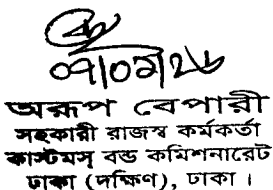 ০৭/০৯/২৬
অরূপ বেপারী
সহকারী রাজস্ব কর্মকর্তা
কাস্টমস্ বন্ড কমিশনারেট
ঢাকা (দক্ষিণ), ঢাকা ।